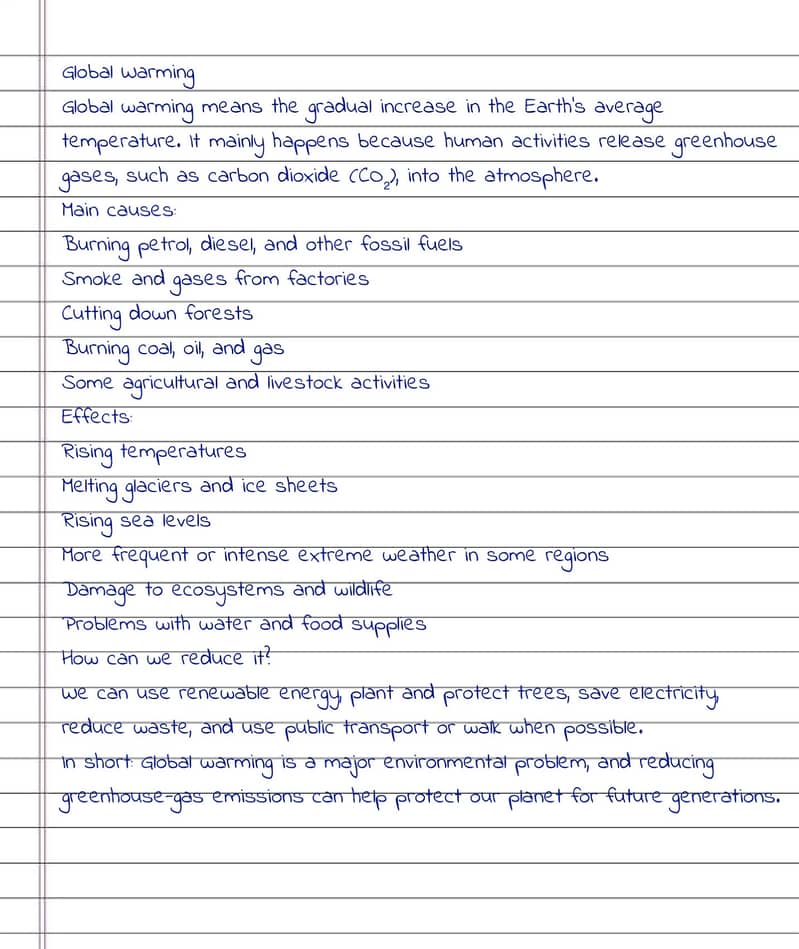 Global warming
Global warming means the gradual increase in the Earth's average
temperature. It mainly happens because human activities release greenhouse
gases, such as carbon dioxide (CO₂), into the atmosphere.
Main causes:
Burning petrol, diesel, and other fossil fuels
Smoke and gases from factories
Cutting down forests
Burning coal, oil, and gas
Some agricultural and livestock activities
Effects:
Rising temperatures
Melting glaciers and ice sheets
Rising sea levels
More frequent or intense extreme weather in some regions
Damage to ecosystems and wildlife
Problems with water and food supplies
How can we reduce it?
We can use renewable energy, plant and protect trees, save electricity,
reduce waste, and use public transport or walk when possible.
In short: Global warming is a major environmental problem, and reducing
greenhouse-gas emissions can help protect our planet for future generations.